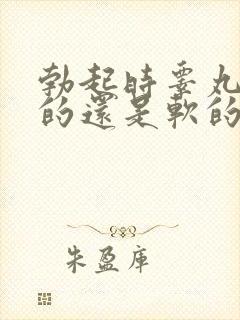 勃起时睾丸
的還是軟的
朱盈库